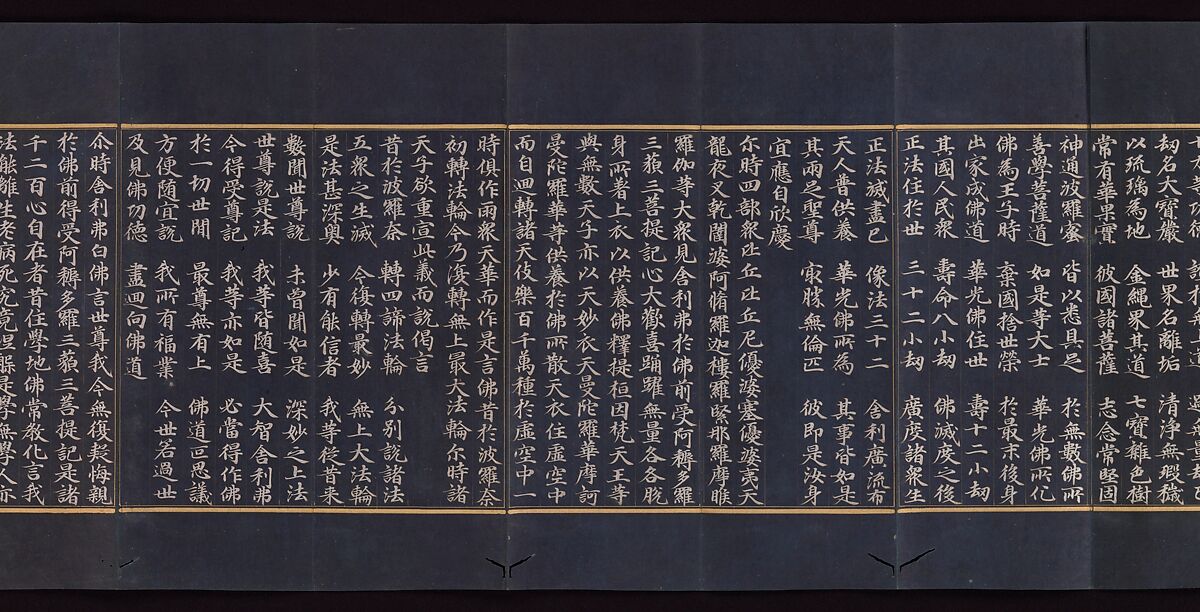 等功德　證於無上道　過無量劫已
劫名大寶嚴　世界名離垢　清淨無瑕穢
以琉璃為地　金繩界其道　七寶雜色樹
常有華菓實　彼國諸菩薩　志念常堅固
神通波羅蜜　皆以悉具足　於無數佛所
善學菩薩道　如是等大士　華光佛所化
佛為王子時　棄國捨世榮　於最末後身
出家成佛道　華光佛住世　壽十二小劫
其國人民眾　壽命八小劫　佛滅度之後
正法住於世　三十二小劫　廣度諸眾生
正法滅盡已　像法三十二　舍利廣流布
天人普供養　華光佛所為　其事皆如是
其兩足聖尊　冣勝無倫匹　彼即是汝身
宜應自欣慶
尒時四部眾比丘比丘尼優婆塞優婆夷天
龍夜叉乾闥婆阿脩羅迦樓羅緊那羅摩睺
羅伽等大眾見舍利弗於佛前受阿耨多羅
三藐三菩提記心大歡喜踊躍無量各各脫
身所著上衣以供養佛釋提桓因梵天王等
與無數天子亦以天妙衣天曼陀羅華摩訶
曼陀羅華等供養於佛所散天衣住虛空中
而自迴轉諸天伎樂百千萬種於虛空中一
時俱作雨眾天華而作是言佛昔於波羅奈
初轉法輪今乃復轉無上最大法輪尒時諸
天子欲重宣此義而說偈言
昔於波羅奈　轉四諦法輪　分別說諸法
五眾之生滅　今復轉最妙　無上大法輪
是法甚深奧　少有能信者　我等從昔來
數聞世尊說　未曾聞如是　深妙之上法
世尊說是法　我等皆隨喜　大智舍利弗
今得受尊記　我等亦如是　必當得作佛
於一切世間　最尊無有上　佛道叵思議
方便隨宜說　我所有福業　今世若過世
及見佛功德　盡迴向佛道
尒時舍利弗白佛言世尊我今無復疑悔親
於佛前得受阿耨多羅三藐三菩提記是諸
千二百心自在者昔住學地佛常教化言我
法能離生老病死究竟涅槃是學無學人亦